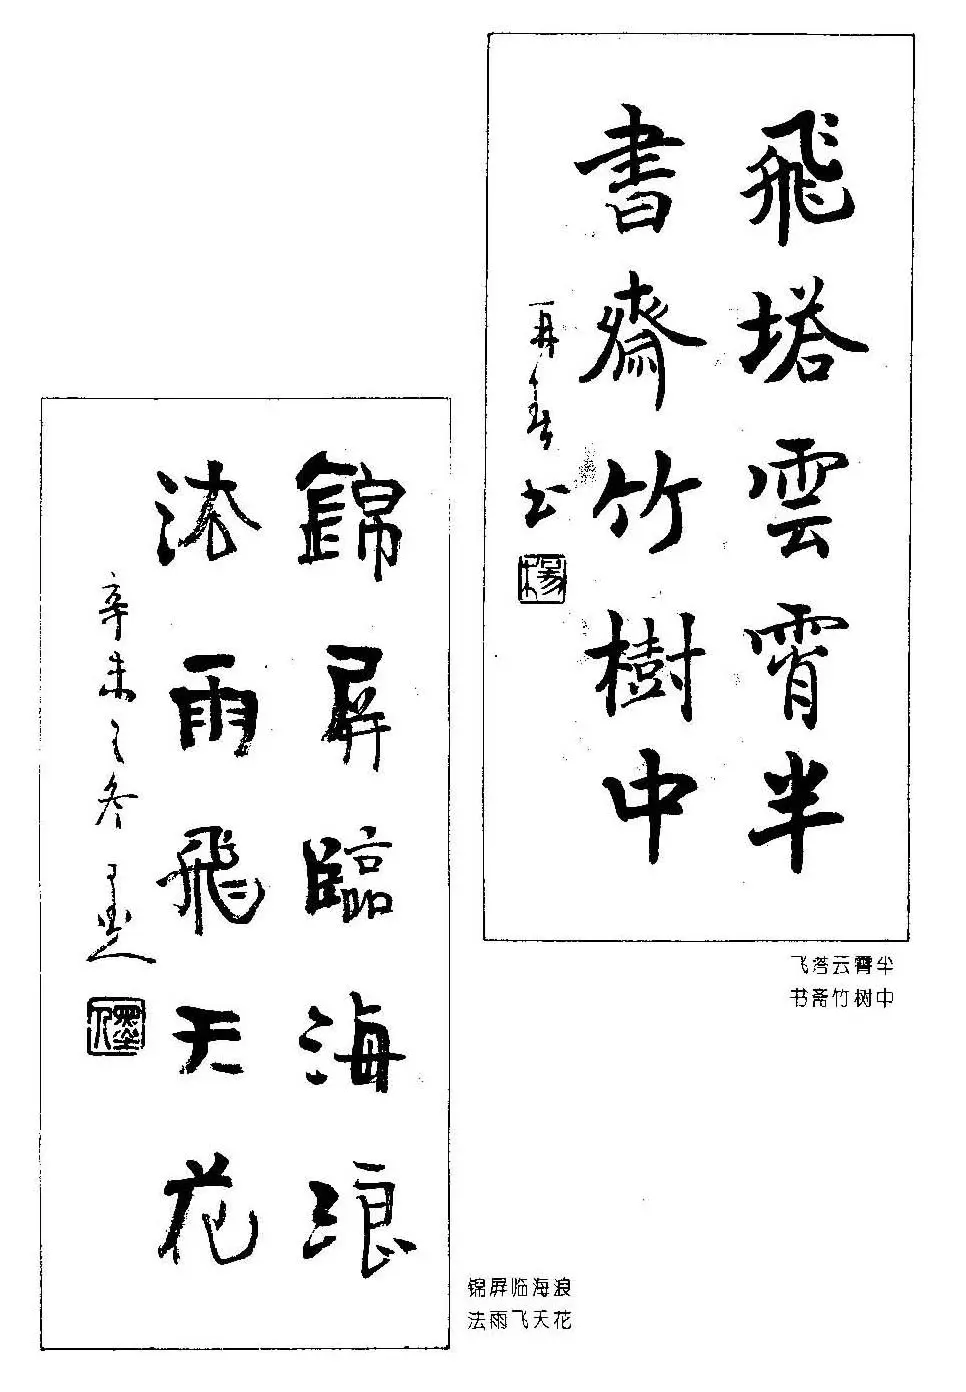 飛塔雲霄半
書齋竹樹中
再春书
楊
飞塔云霄半
书斋竹树中
錦屏臨海浪
法雨飛天花
辛未之冬
墨人
锦屏临海浪
法雨飞天花